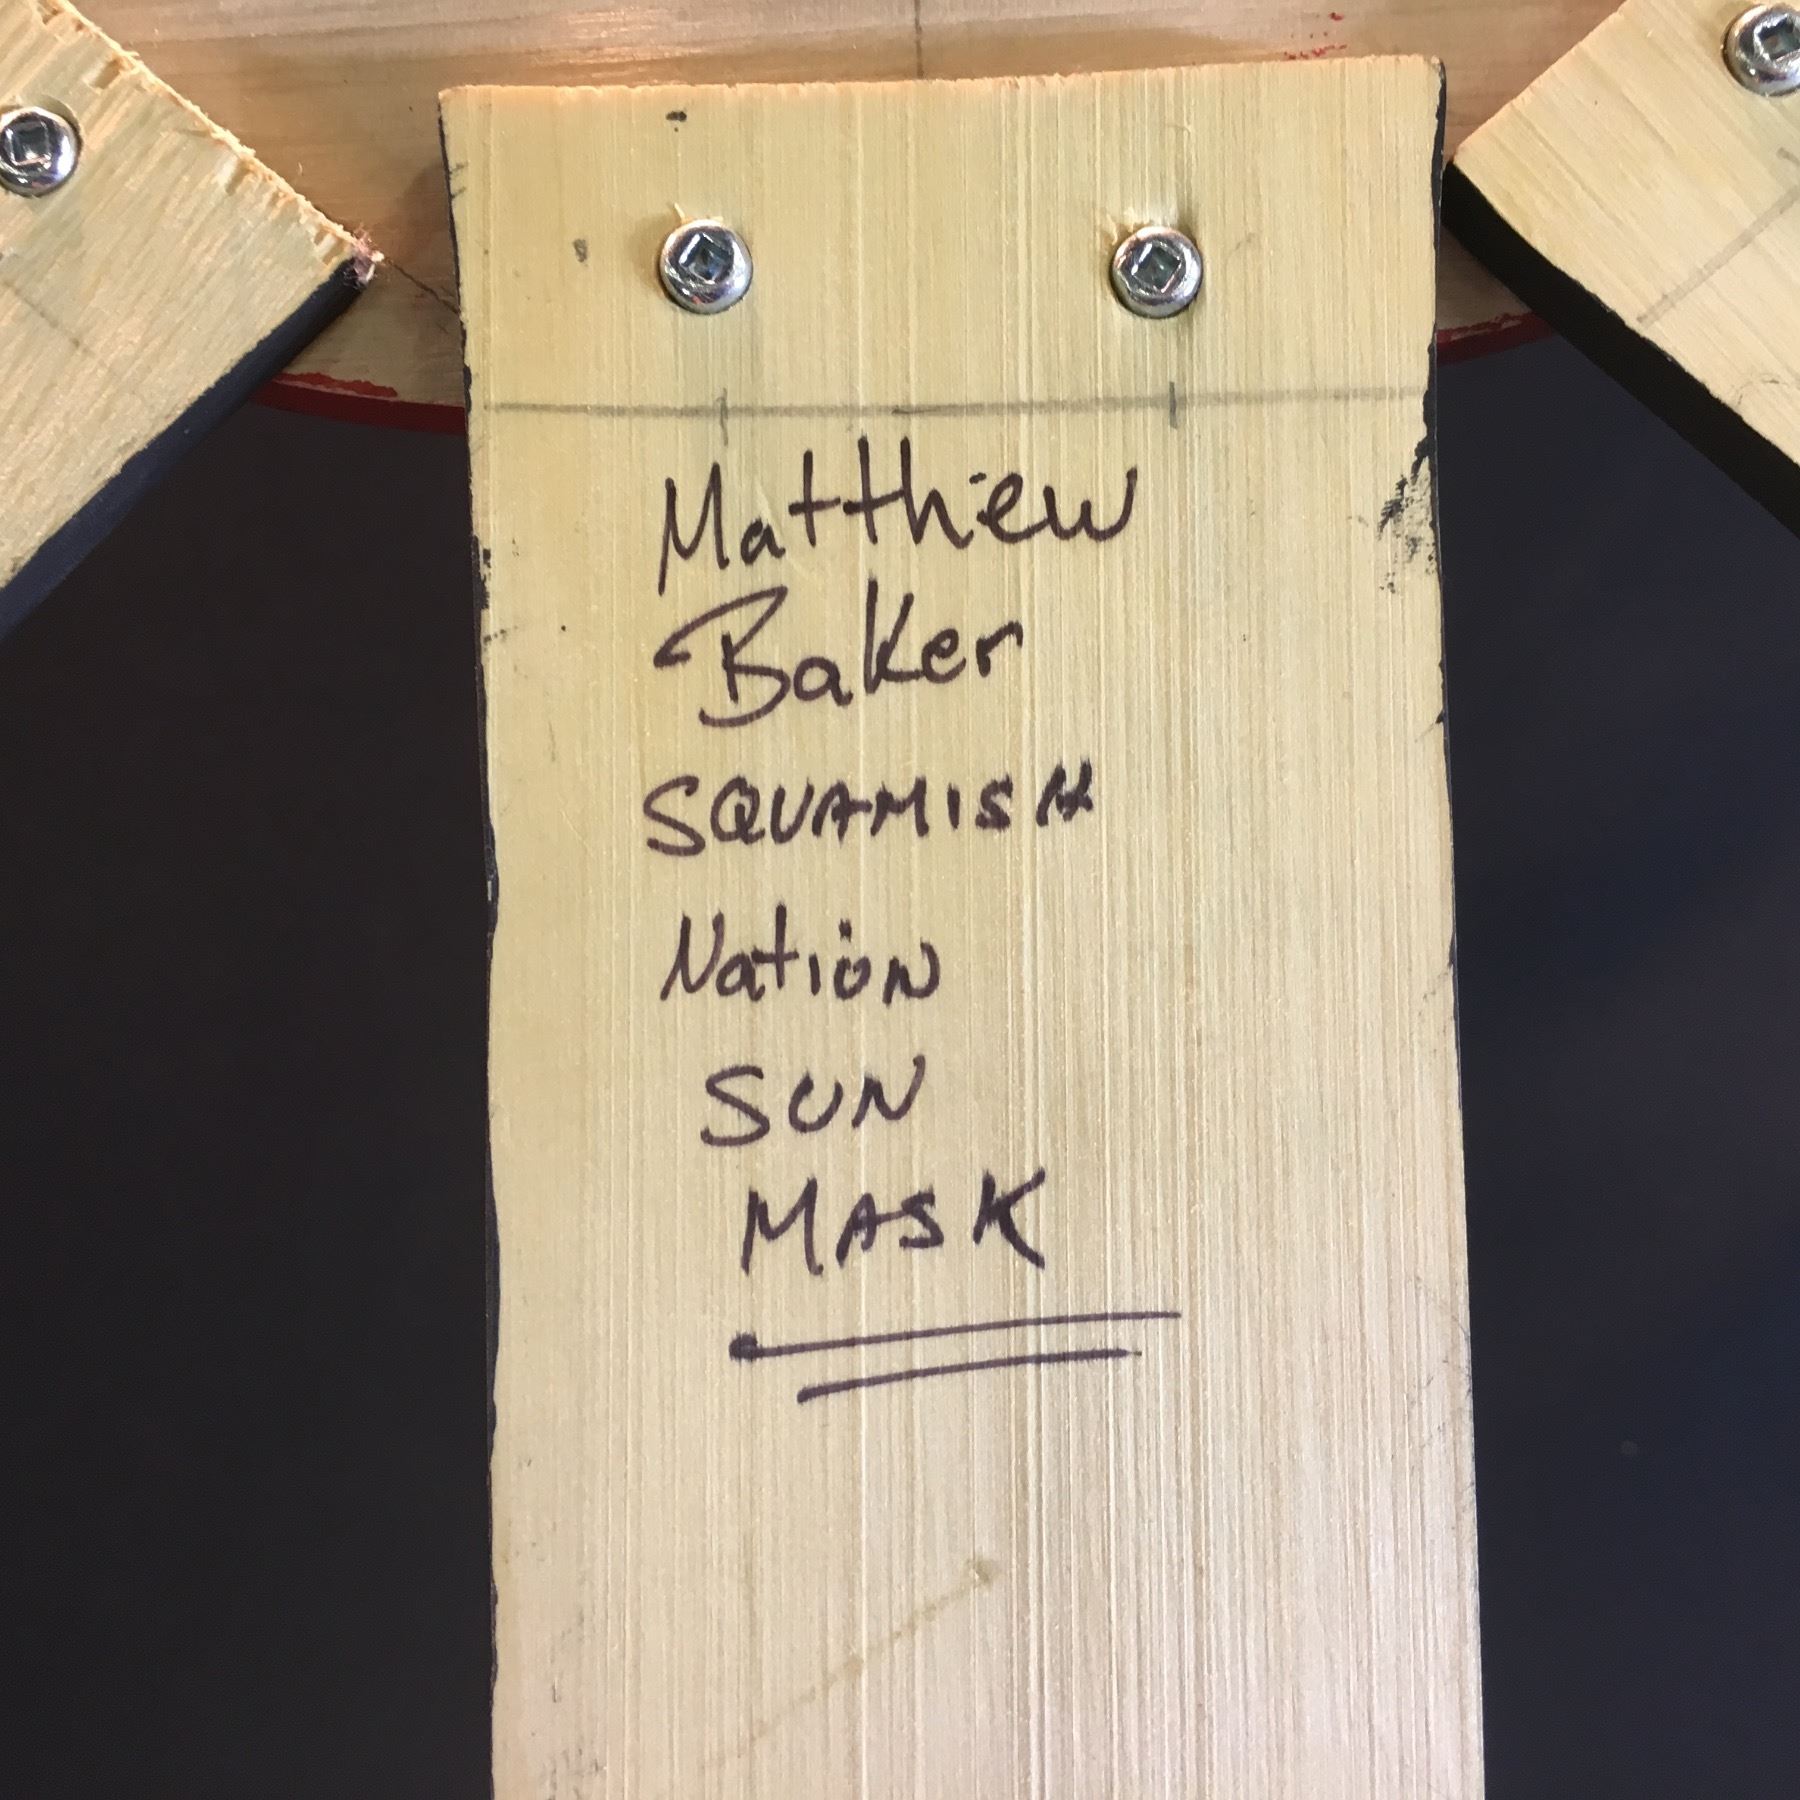 Matthew
Baker
SQUAMISH
Nation
SUN
MASK